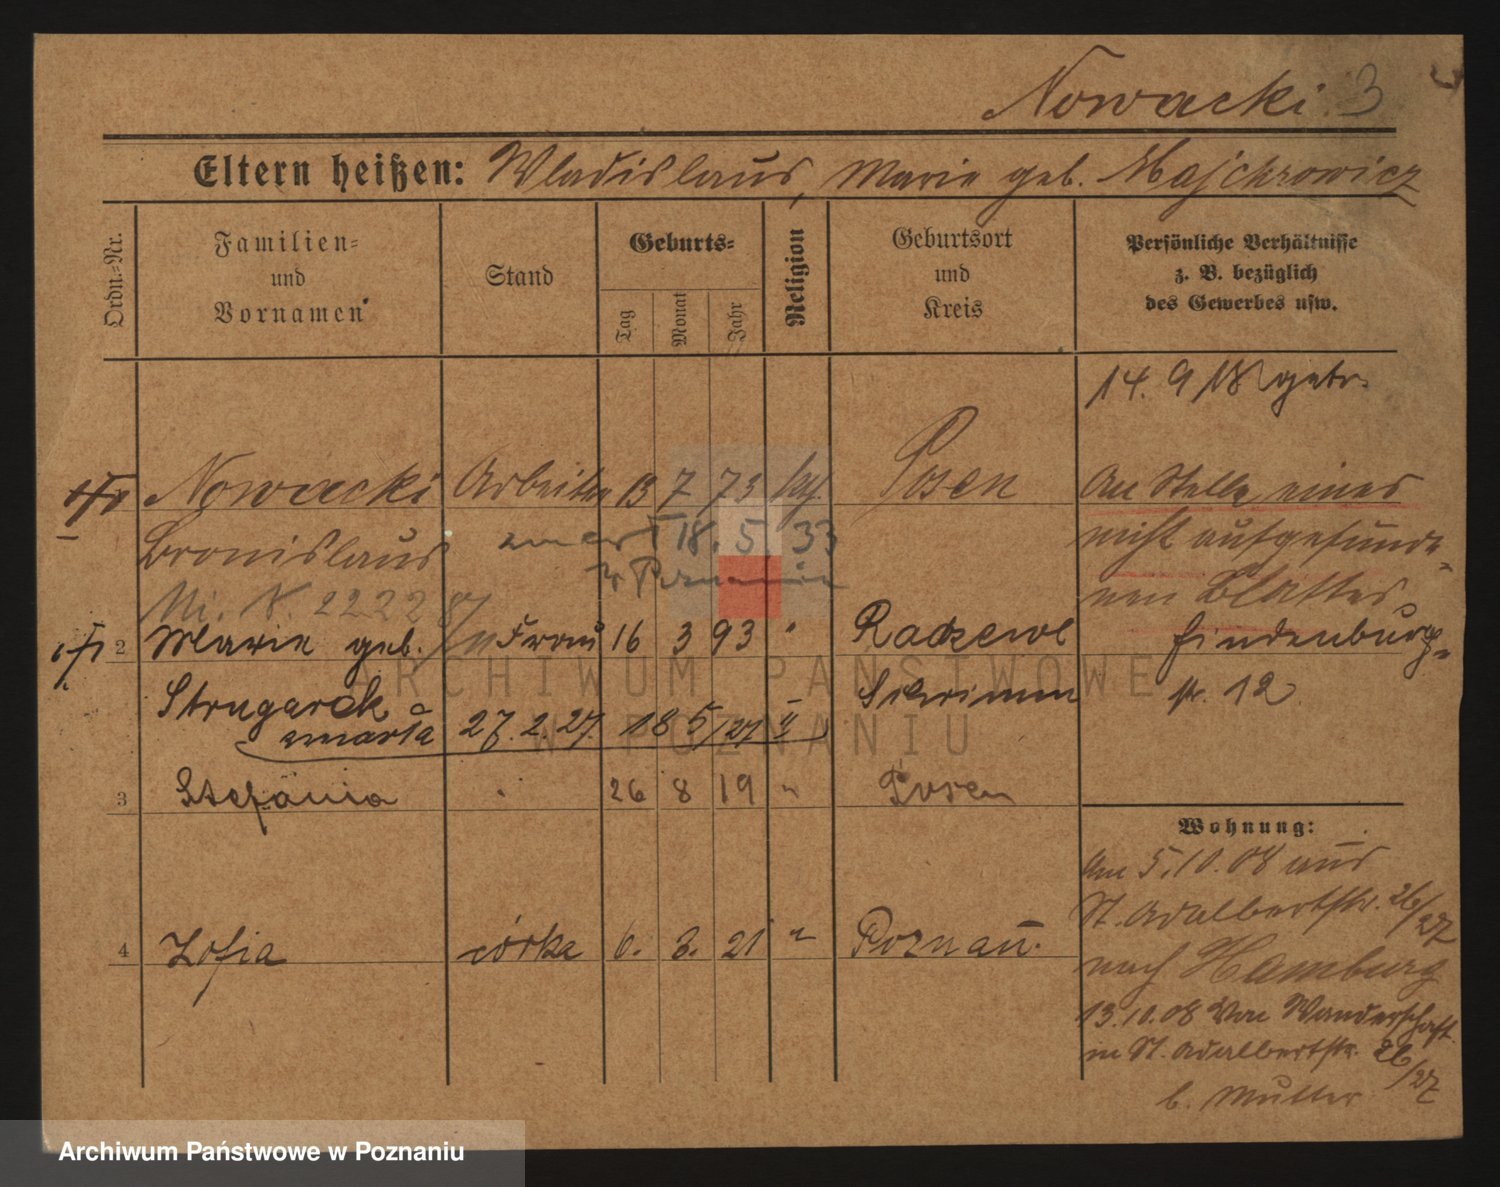 Nowacki 3
Eltern heißen: Wladislaus, Marie geb. Majchrowicz
Ordn.=Nr.
Familien=
und
Vornamen
Stand
Geburts=
Tag
Monat
Jahr
Religion
Geburtsort
und
Kreis
Persönliche Verhältnisse
z. B. bezüglich
des Gewerbes usw.
14. 9 18 getr.
Nowacki Arbeiter 13 7 73 kath. Posen
Bronislaus
zmarł 18. 5. 33
w Poznaniu
An Stelle eines
nicht aufgefunde=
nen Blattes
2 Marie geb. Frau 16 3 93 " Radzewo
Hindenburg=
Strugarek Schrimm
str. 12
zmarła 27. 2. 27. 18 5/27 II
3 Stefania 26 8 19 " Posen
4 Zofia córka 6. 3. 21 " Poznań.
Wohnung:
Am 5.10.08 aus
St. Adalbertstr. 26/27
nach Hamburg
13.10.08 Von Wanderschaft
in St. Adalbertstr. 26/27
b. Mutter
ARCHIWUM PAŃSTWOWE
W POZNANIU
Archiwum Państwowe w Poznaniu